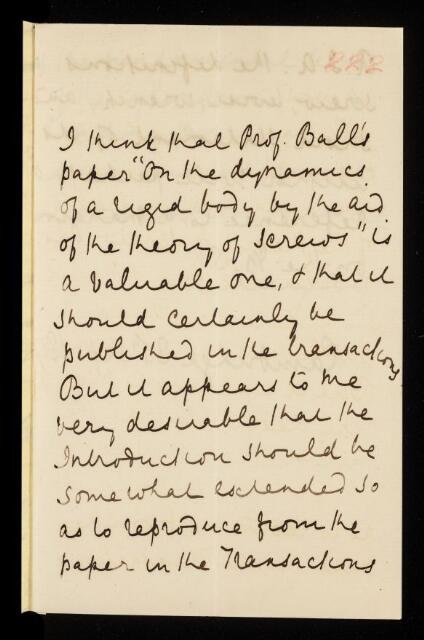 I think that Prof. Ball's
paper "On the dynamics
of a rigid body by the aid
of the theory of screws" is
a valuable one, & that it
should certainly be
published in the transactions
But it appears to me
very desirable that the
Introduction should be
somewhat extended so
as to reproduce from the
paper in the Transactions